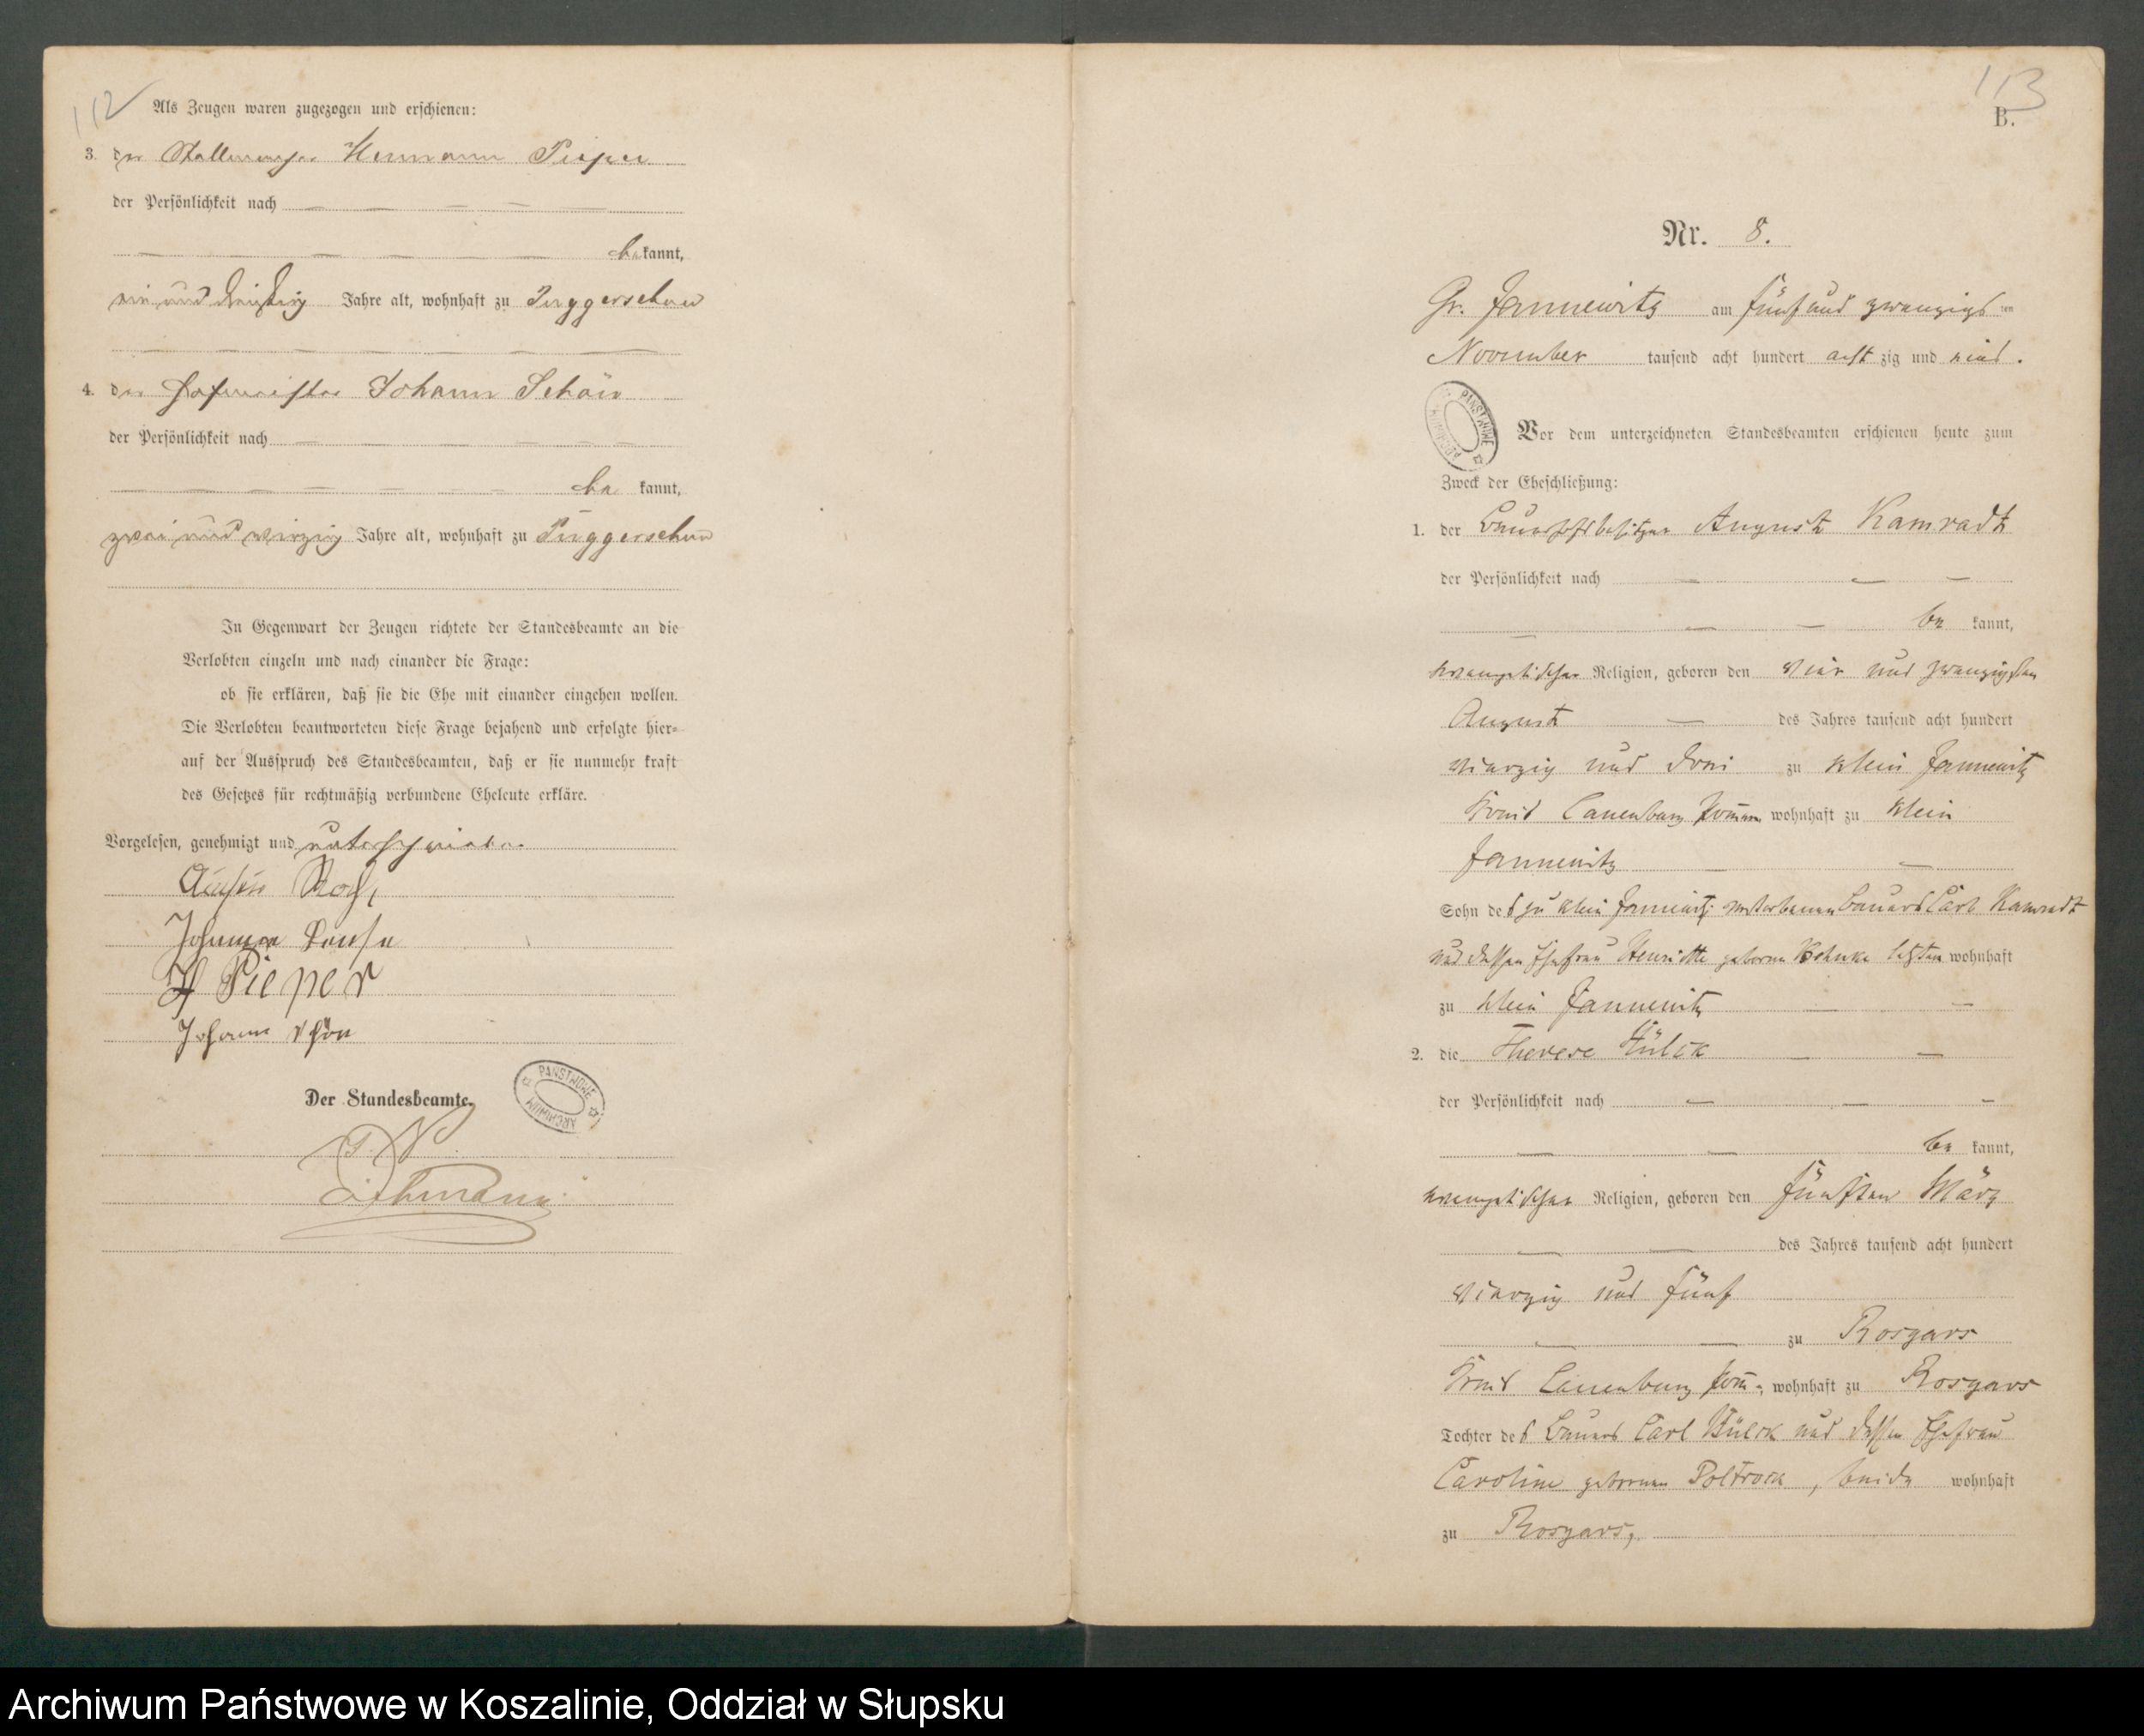 112
Als Zeugen waren zugezogen und erschienen:
3. der Hermann Pieper
der Persönlichkeit nach
bekannt,
ein und dreißig Jahre alt, wohnhaft zu Puggerschow
4. der Hofmeister Johann Schön
der Persönlichkeit nach
be kannt,
zwei und vierzig Jahre alt, wohnhaft zu Puggerschow
In Gegenwart der Zeugen richtete der Standesbeamte an die
Verlobten einzeln und nach einander die Frage:
ob sie erklären, daß sie die Ehe mit einander eingehen wollen.
Die Verlobten beantworteten diese Frage bejahend und erfolgte hier-
auf der Ausspruch des Standesbeamten, daß er sie nunmehr kraft
des Gesetzes für rechtmäßig verbundene Eheleute erkläre.
Vorgelesen, genehmigt und unterschrieben
Johann
H Pieper
Johann Schön
Der Standesbeamte.
ARCHIWUM PAŃSTWOWE
113
B.
Nr. 8.
Gr. Jannewitz am fünf und zwanzigsten
November tausend acht hundert acht zig und eins.
ARCHIWUM PAŃSTWOWE
Vor dem unterzeichneten Standesbeamten erschienen heute zum
Zweck der Eheschließung:
1. der Bauerhofsbesitzer August Kamradt
der Persönlichkeit nach
be kannt,
evangelischer Religion, geboren den vier und zwanzigsten
August des Jahres tausend acht hundert
vierzig und drei zu Klein Jannewitz
Kreis Lauenburg Pomm wohnhaft zu Klein
Jannewitz
Sohn des zu Klein Jannewitz verstorbenen Bauers Carl Kamradt
und dessen Ehefrau Henriette geborne letzten wohnhaft
zu Klein Jannewitz
2. die Therese
der Persönlichkeit nach
be kannt,
evangelischer Religion, geboren den fünften März
des Jahres tausend acht hundert
vierzig und fünf
zu Rosgars
Kreis Lauenburg Pom., wohnhaft zu Rosgars
Tochter des Bauers Carl und dessen Ehefrau
Caroline gebornen Poltrock, beide wohnhaft
zu Rosgars,
Archiwum Państwowe w Koszalinie, Oddział w Słupsku